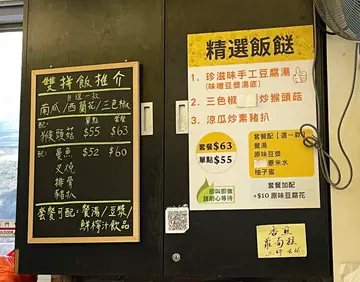 雙拼飯推介
自選一款
南瓜/西蘭花/三色椒
配:
猴頭菇 $55 $63
配: 曼魚 $52 $60
叉燒
排骨
豬扒
套餐可配: 餐湯/豆漿/
鮮榨汁飲品
精選飯餸
1. 珍滋味手工豆腐湯
(味噌豆漿湯底)
2. 三色椒 炒猴頭菇
3. 涼瓜炒素豬扒
套餐$63
單點$55
套餐配【選一款】
餐湯
原味豆漿
薏米水
柚子蜜
即叫即做
請耐心等待
套餐加配
+$10 原味豆腐花
店煎
蘿蔔糕